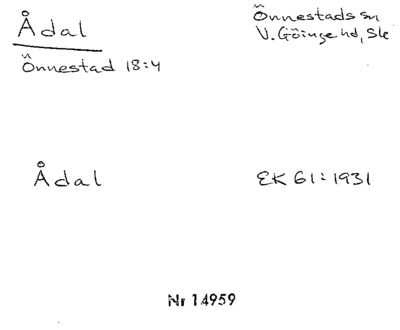 Ådal
Önnestads sn
V. Göinge hd, Sk
Önnestad 18:4
Ådal
EK 61:1931
Nr 14959